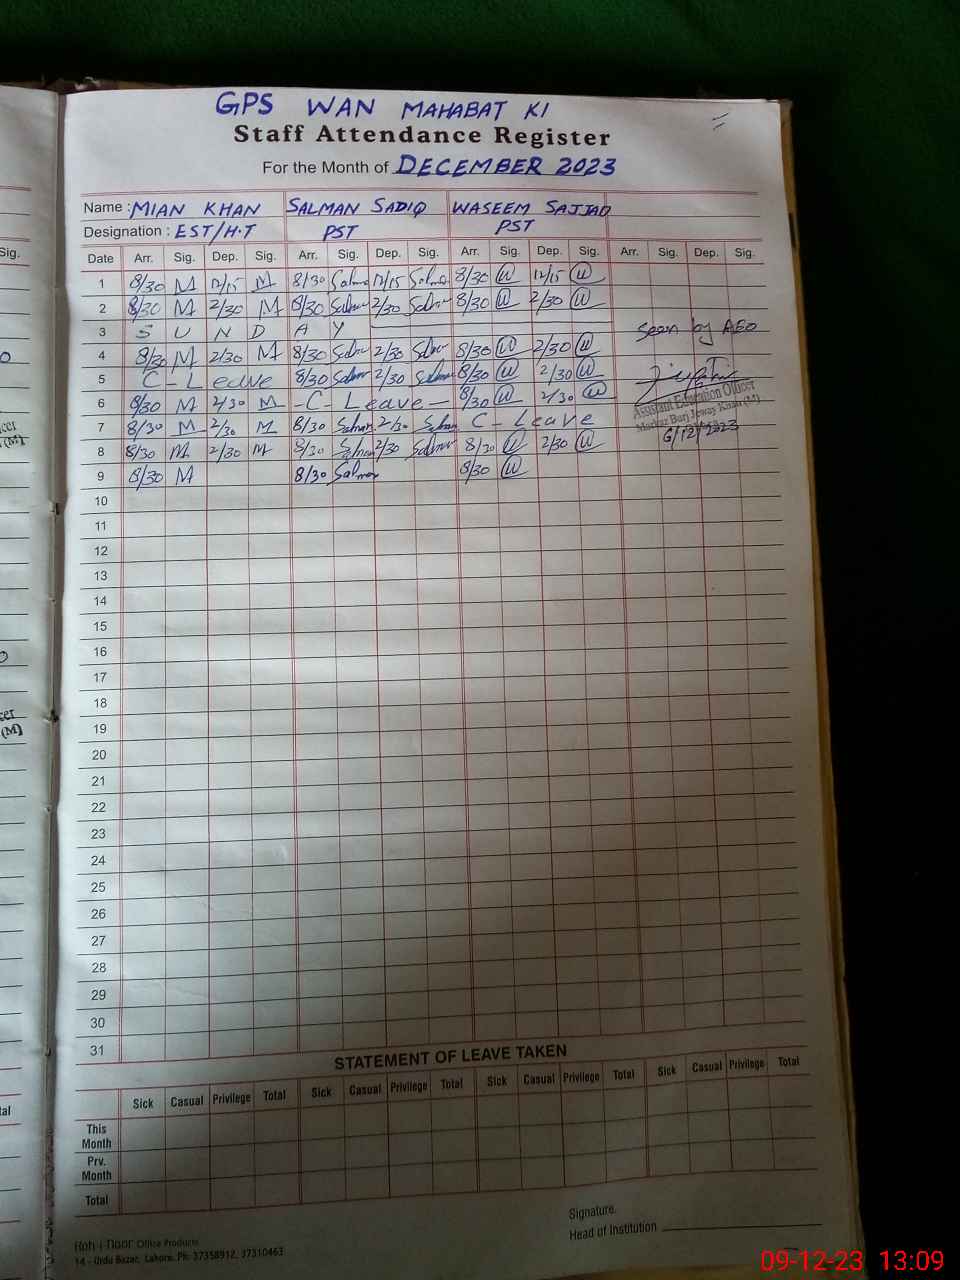 GPS WAN MAHABAT KI
Staff Attendance Register
For the Month of DECEMBER 2023
Name : MIAN KHAN SALMAN SADIQ WASEEM SAJJAD
Designation : EST/H.T PST PST
Date Arr. Sig. Dep. Sig. Arr. Sig. Dep. Sig. Arr. Sig. Dep. Sig. Arr. Sig. Dep. Sig.
1 8/30 M 12/15 M 8/30 Salman 12/15 Salman 8/30 W 12/15 W
2 8/30 M 2/30 M 8/30 Salman 2/30 Salman 8/30 W 2/30 W
3 S U N D A Y Seen by AEO
4 8/30 M 2/30 M 8/30 Salman 2/30 Salman 8/30 W 2/30 W
5 C - Leave 8/30 Salman 2/30 Salman 8/30 W 2/30 W
6 8/30 M 2/30 M - C - Leave - 8/30 W 2/30 W
Assistant Education Officer
Markaz Burj Jeway Khan (M)
7 8/30 M 2/30 M 8/30 Salman 2/30 Salman C - Leave 6/12/2023
8 8/30 M 2/30 M 8/30 Salman 2/30 Salman 8/30 W 2/30 W
9 8/30 M 8/30 Salman 8/30 W
10
11
12
13
14
15
16
17
18
19
20
21
22
23
24
25
26
27
28
29
30
31
STATEMENT OF LEAVE TAKEN
Sick Casual Privilege Total Sick Casual Privilege Total Sick Casual Privilege Total Sick Casual Privilege Total
This
Month
Prv.
Month
Total
Signature.
Head of Institution
Roh i Noor Office Products
14 - Urdu Bazar, Lahore. Ph: 37358912, 37310463
09-12-23 13:09